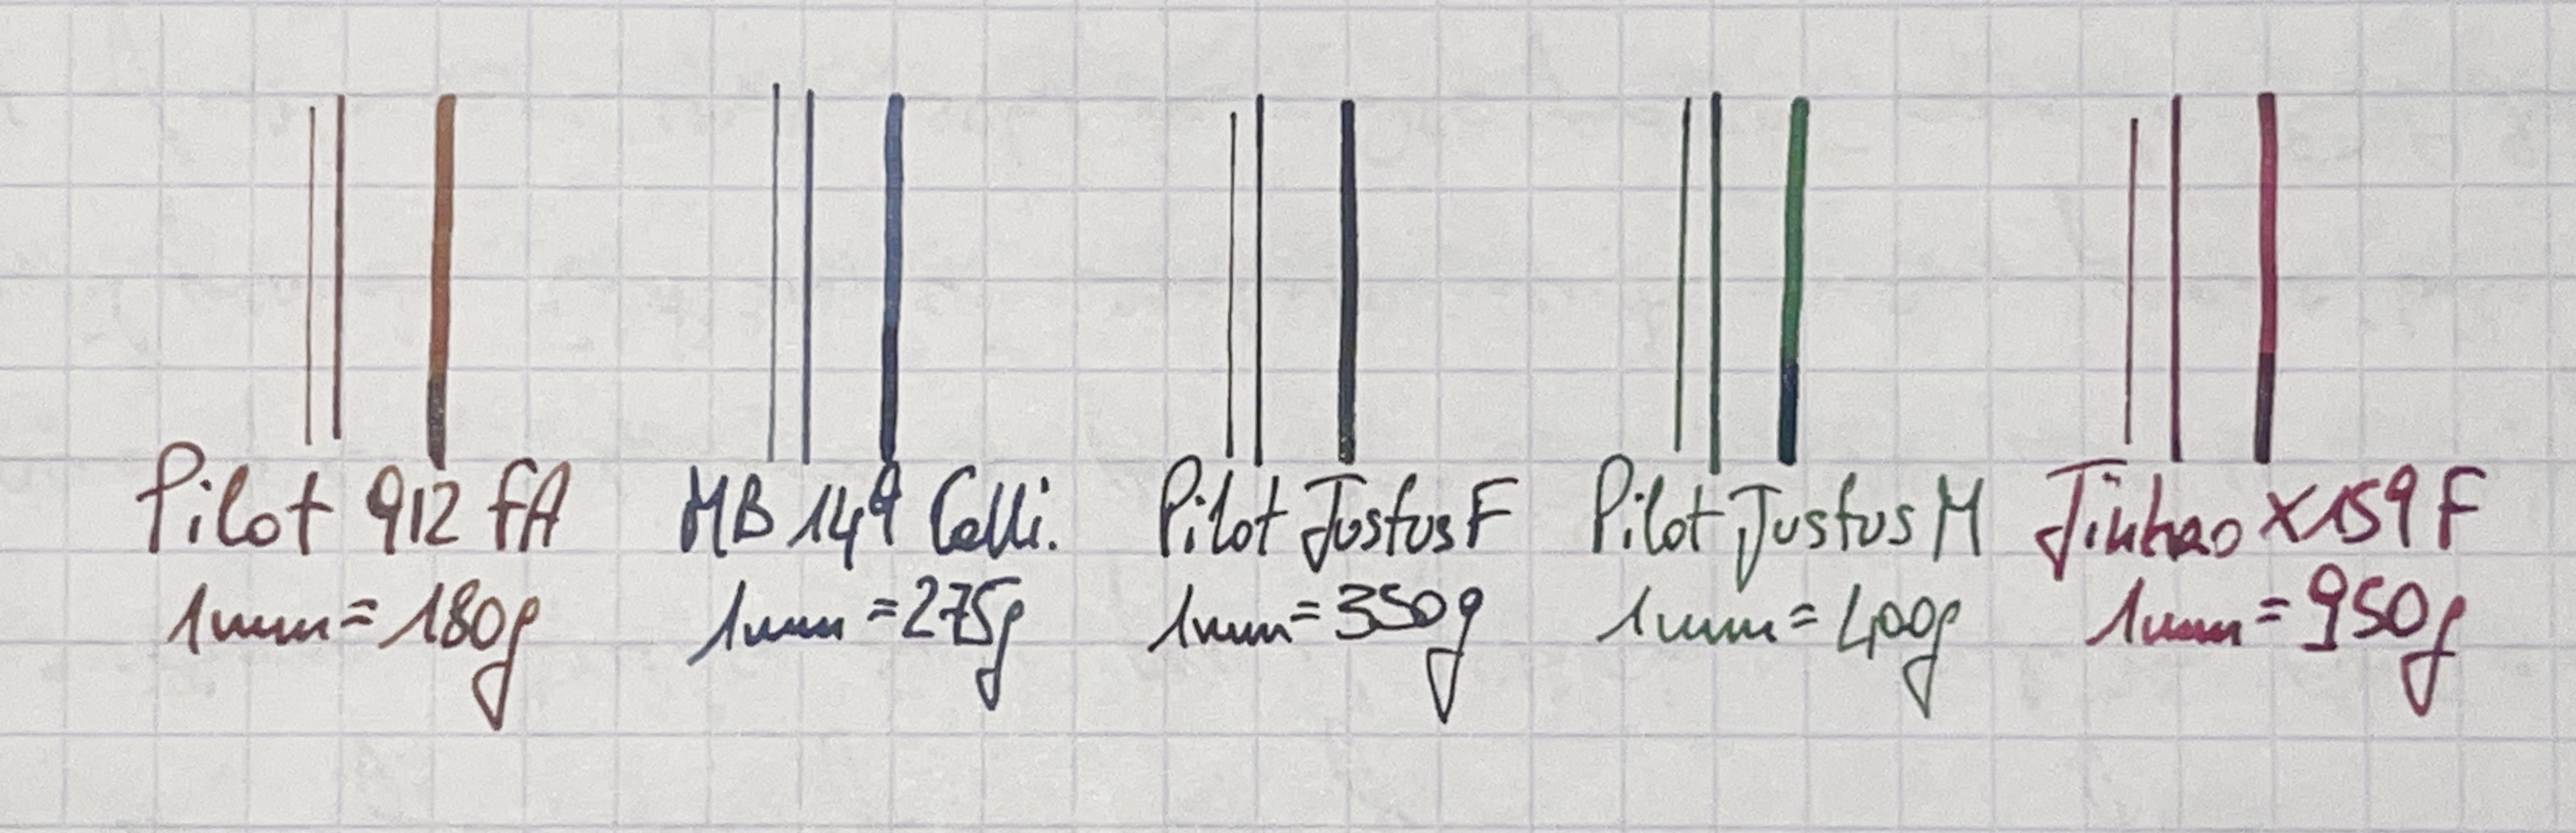 Pilot 912 FA
1mm = 180g
MB 149 Calli.
1mm = 275g
Pilot Justus F
1mm = 350g
Pilot Justus M
1mm = 400g
Jinhao X159 F
1mm = 950g